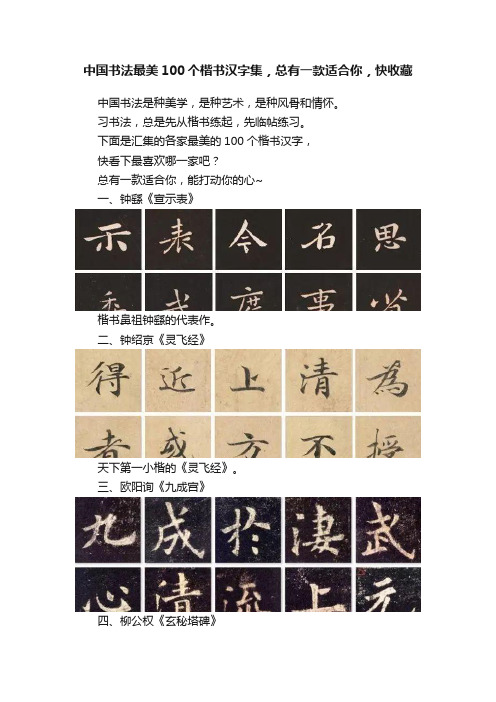 中国书法最美100个楷书汉字集，总有一款适合你，快收藏
中国书法是种美学，是种艺术，是种风骨和情怀。
习书法，总是先从楷书练起，先临帖练习。
下面是汇集的各家最美的100个楷书汉字，
快看下最喜欢哪一家吧？
总有一款适合你，能打动你的心~
一、钟繇《宣示表》
示表令名思
楷书鼻祖钟繇的代表作。
二、钟绍京《灵飞经》
得近上清為
者或方不授
天下第一小楷的《灵飞经》。
三、欧阳询《九成宫》
九成於淒武
心清流上元
四、柳公权《玄秘塔碑》